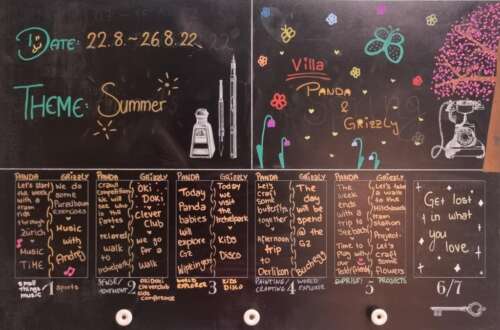 DATE: 22.8.~26.8.22
THEME: Summer
Villa
PANDA
&
GRIZZLY
PANDA GRIZZLY
Let's start
the week
with a
tram
ride
through
Zürich
Music
TiME
We do
some
EXPLORES
Music
with
Andrej
small
things
music
1
sports
PANDA GRIZZLY
Crawl
we will
the
Central
Walk
to
OKi
DOKi
Clever
Club
We go
for a
Walk
2
OkiDoki
cleverclub
kids
conference
PANDA GRIZZLY
Today
Panda
babies
will
explore
G2
Wipkingen
Today
we
visit
the
KiDS
DiSCO
WORLD
EXPLORER
3
KiDS
DiSCO
PANDA GRIZZLY
Let's
craft
some
butterflys
together
Afternoon
trip
to
Oerlikon
The
day
will
be
spend
@
the
G2
Bucheggi
PAINTING/
CRAFTING
4
WORLD
EXPLORER
PANDA GRIZZLY
The
week
ends
with a
trip to
see
Time to
Play with
our
friends
Let's
take
a walk
to the
train
station
Project:
Let's
Craft
some
Flowers
SURPRISE!
5
PROJECTS
Get lost
in what
you
love
6/7